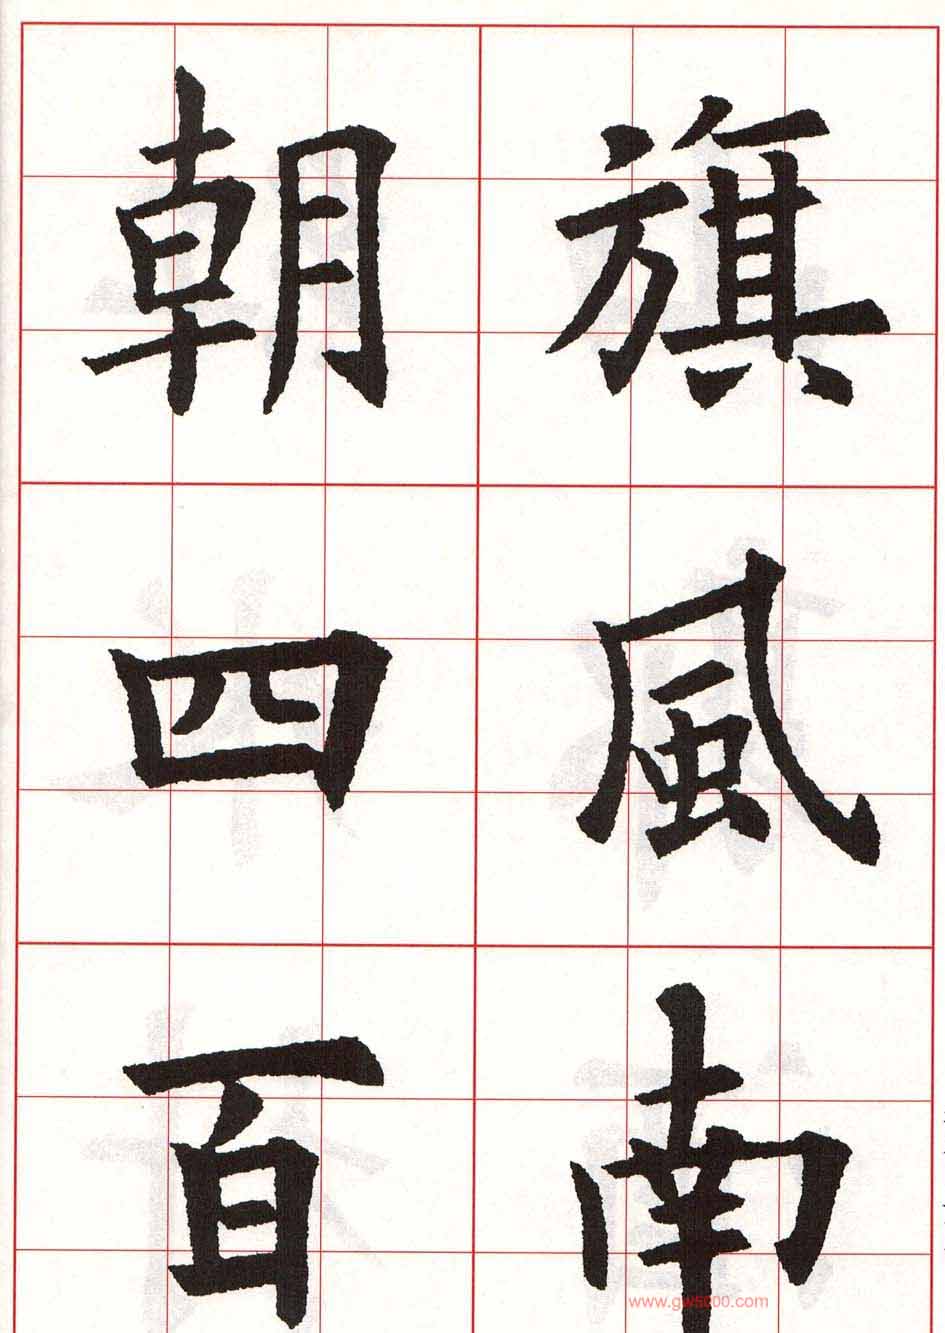 旗風南
朝四百
www.gw5000.com